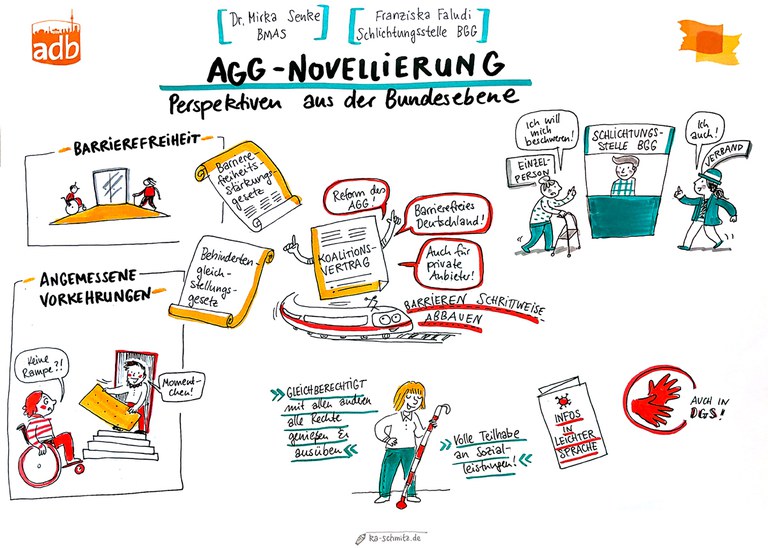 adb
Dr. Mirka Senke
BMAS
Franziska Faludi
Schlichtungsstelle BGG
AGG-NOVELLIERUNG
Perspektiven aus der Bundesebene
BARRIEREFREIHEIT
Barriere-
freiheits-
Stärkungs-
gesetz
Behinderten-
gleich-
stellungs-
gesetz
Reform des
AGG!
Barrierefreies
Deutschland!
Auch für
private
Anbieter!
KOALITIONS-
VERTRAG
BARRIEREN SCHRITTWEISE
ABBAUEN
Ich will
mich
beschweren!
EINZEL-
PERSON
SCHLICHTUNGS-
STELLE BGG
Ich
auch!
VERBAND
ANGEMESSENE
VORKEHRUNGEN
Keine
Rampe?!
Moment-
chen!
»GLEICHBERECHTIGT
mit allen anderen
alle Rechte
genießen &
ausüben«
»Volle Teilhabe
an Sozial-
leistungen!«
INFOS
IN
LEICHTER
SPRACHE
AUCH IN
DGS!
ka-schmitz.de